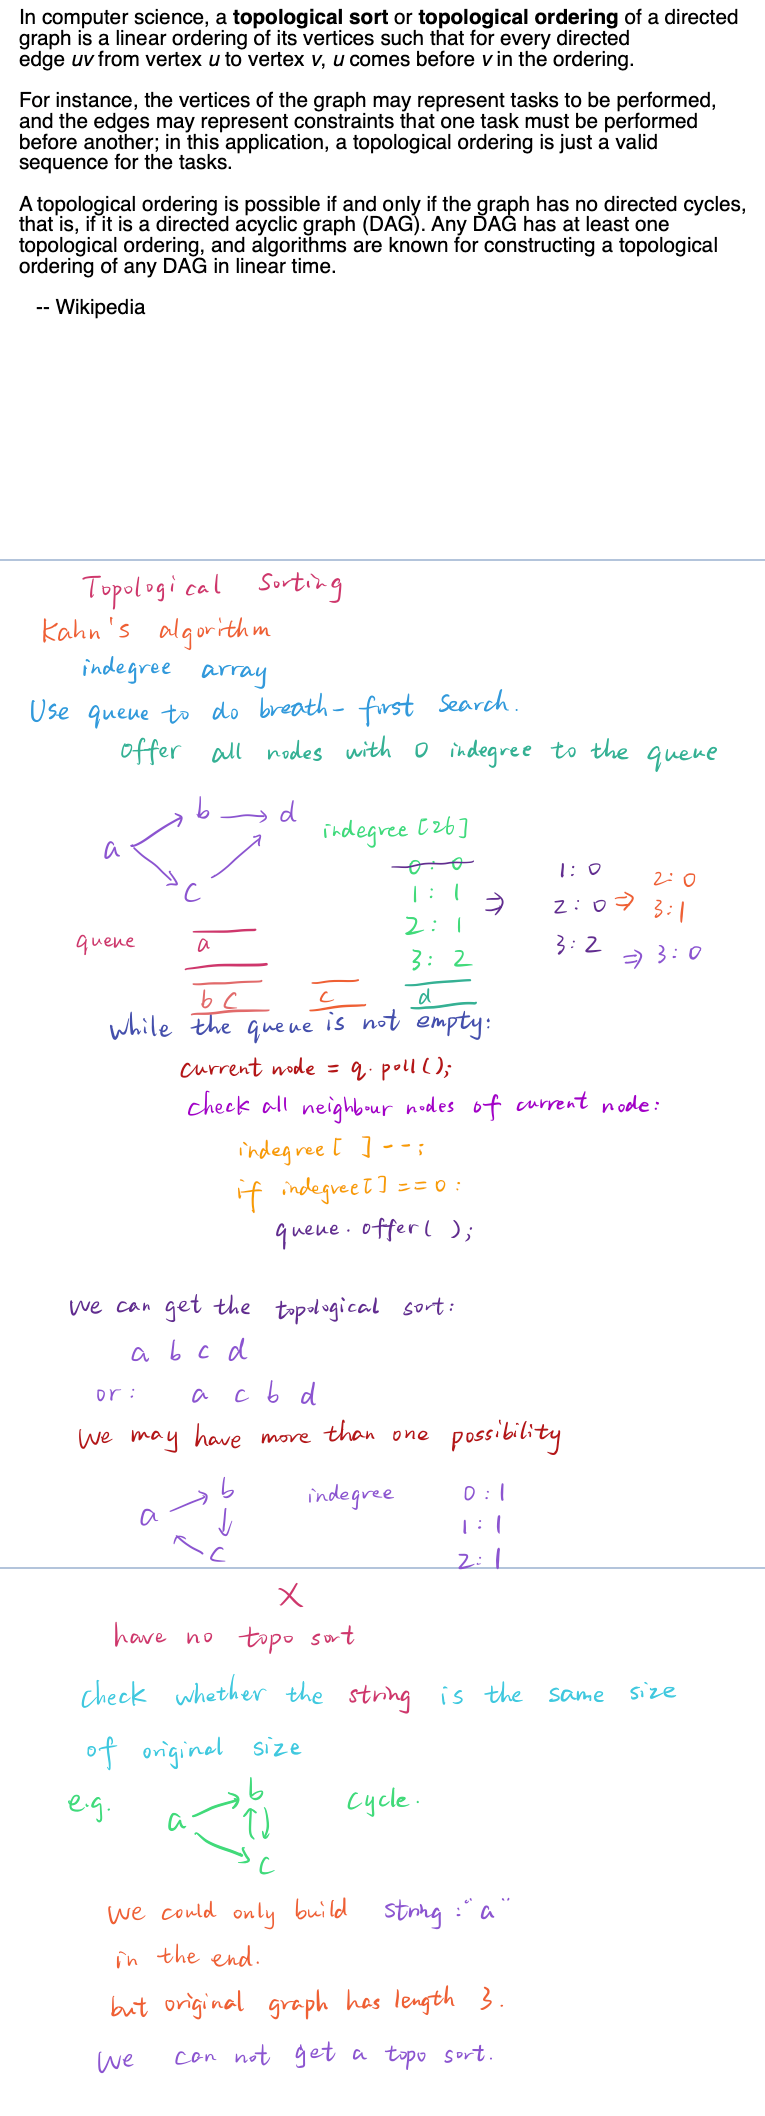 In computer science, a topological sort or topological ordering of a directed
graph is a linear ordering of its vertices such that for every directed
edge uv from vertex u to vertex v, u comes before v in the ordering.
For instance, the vertices of the graph may represent tasks to be performed,
and the edges may represent constraints that one task must be performed
before another; in this application, a topological ordering is just a valid
sequence for the tasks.
A topological ordering is possible if and only if the graph has no directed cycles,
that is, if it is a directed acyclic graph (DAG). Any DAG has at least one
topological ordering, and algorithms are known for constructing a topological
ordering of any DAG in linear time.
-- Wikipedia
Topological Sorting
Kahn's algorithm
indegree array
Use queue to do breath-first Search.
offer all nodes with 0 indegree to the queue
a b d c
indegree [26]
0:0
1:1 ⇒ 1:0 2:0
2:1 2:0 ⇒ 3:1
3:2 3:2 ⇒ 3:0
queue a
b c c d
while the queue is not empty:
current node = q.poll();
check all neighbour nodes of current node:
indegree[ ]--;
if indegree[] ==0:
queue.offer( );
we can get the topological sort:
a b c d
or: a c b d
we may have more than one possibility
a b c indegree 0:1
1:1
2:1
X
have no topo sort
check whether the string is the same size
of original size
e.g. a b c cycle.
we could only build string: "a"
in the end.
but original graph has length 3.
We can not get a topo sort.